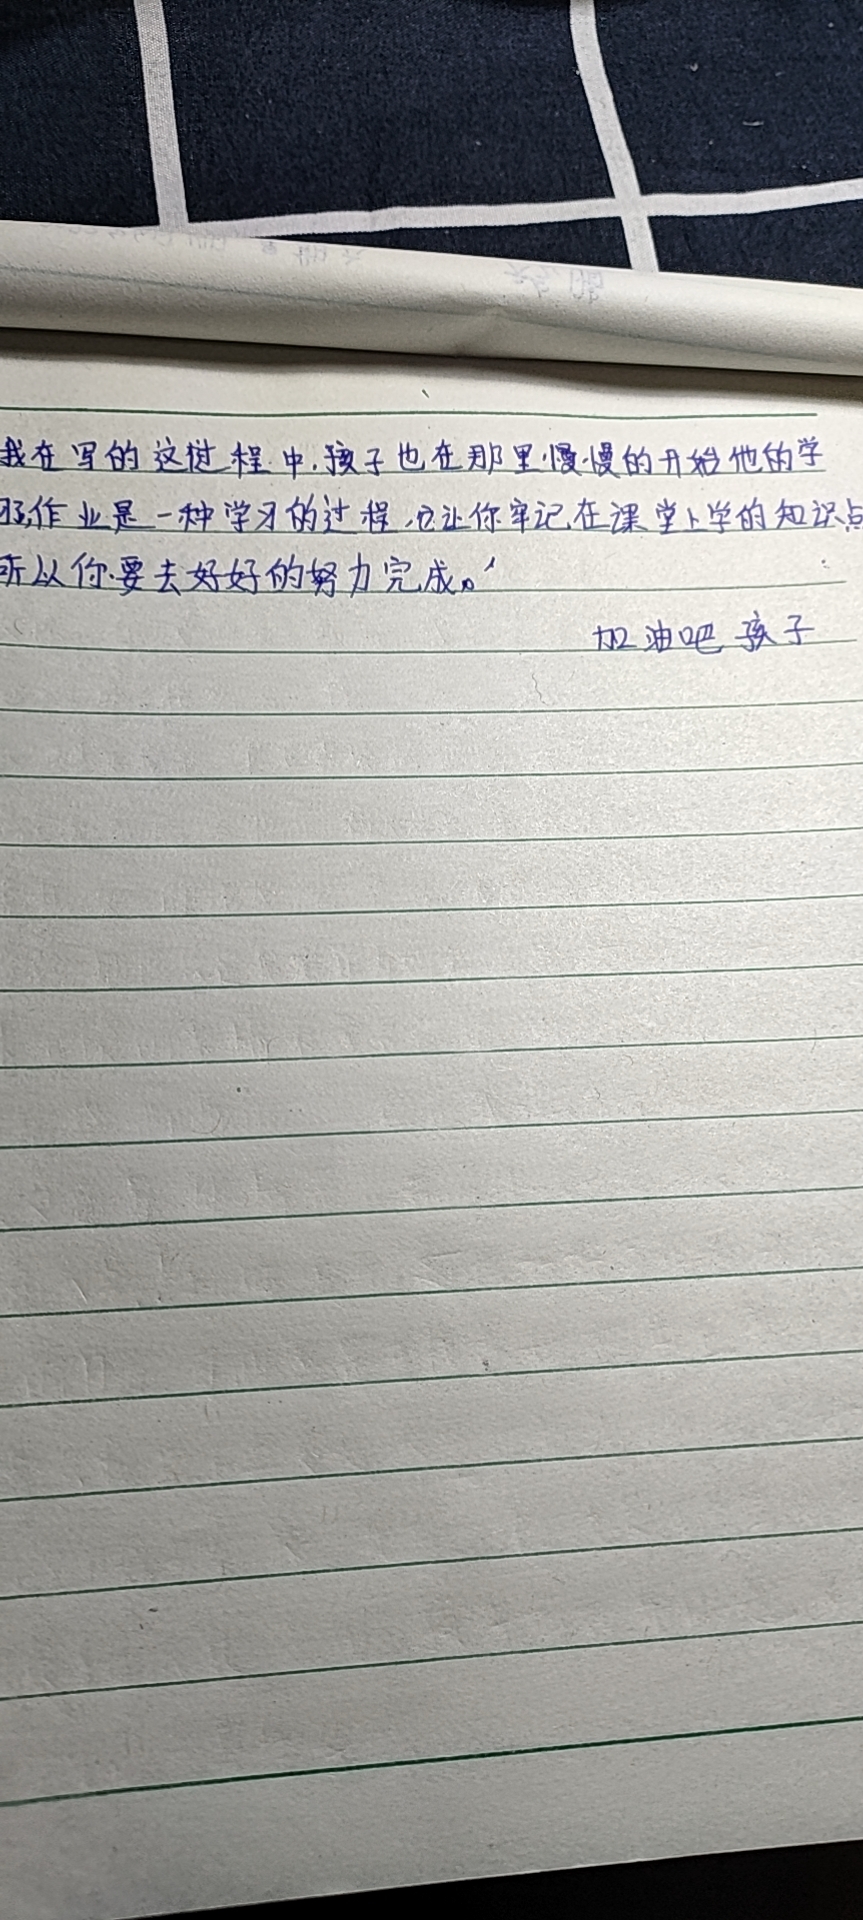 我在写的这过程中.孩子也在那里慢慢的开始他的学
习,作业是一种学习的过程,它让你牢记在课堂上学的知识点
所以你要去好好的努力完成。
加油吧 孩子